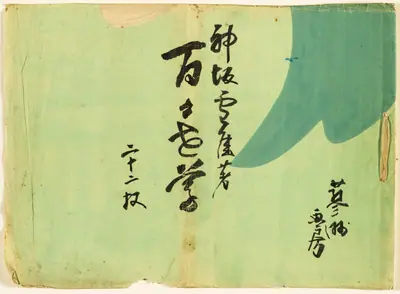 神坂雪佳著
百々世草
二十二枚